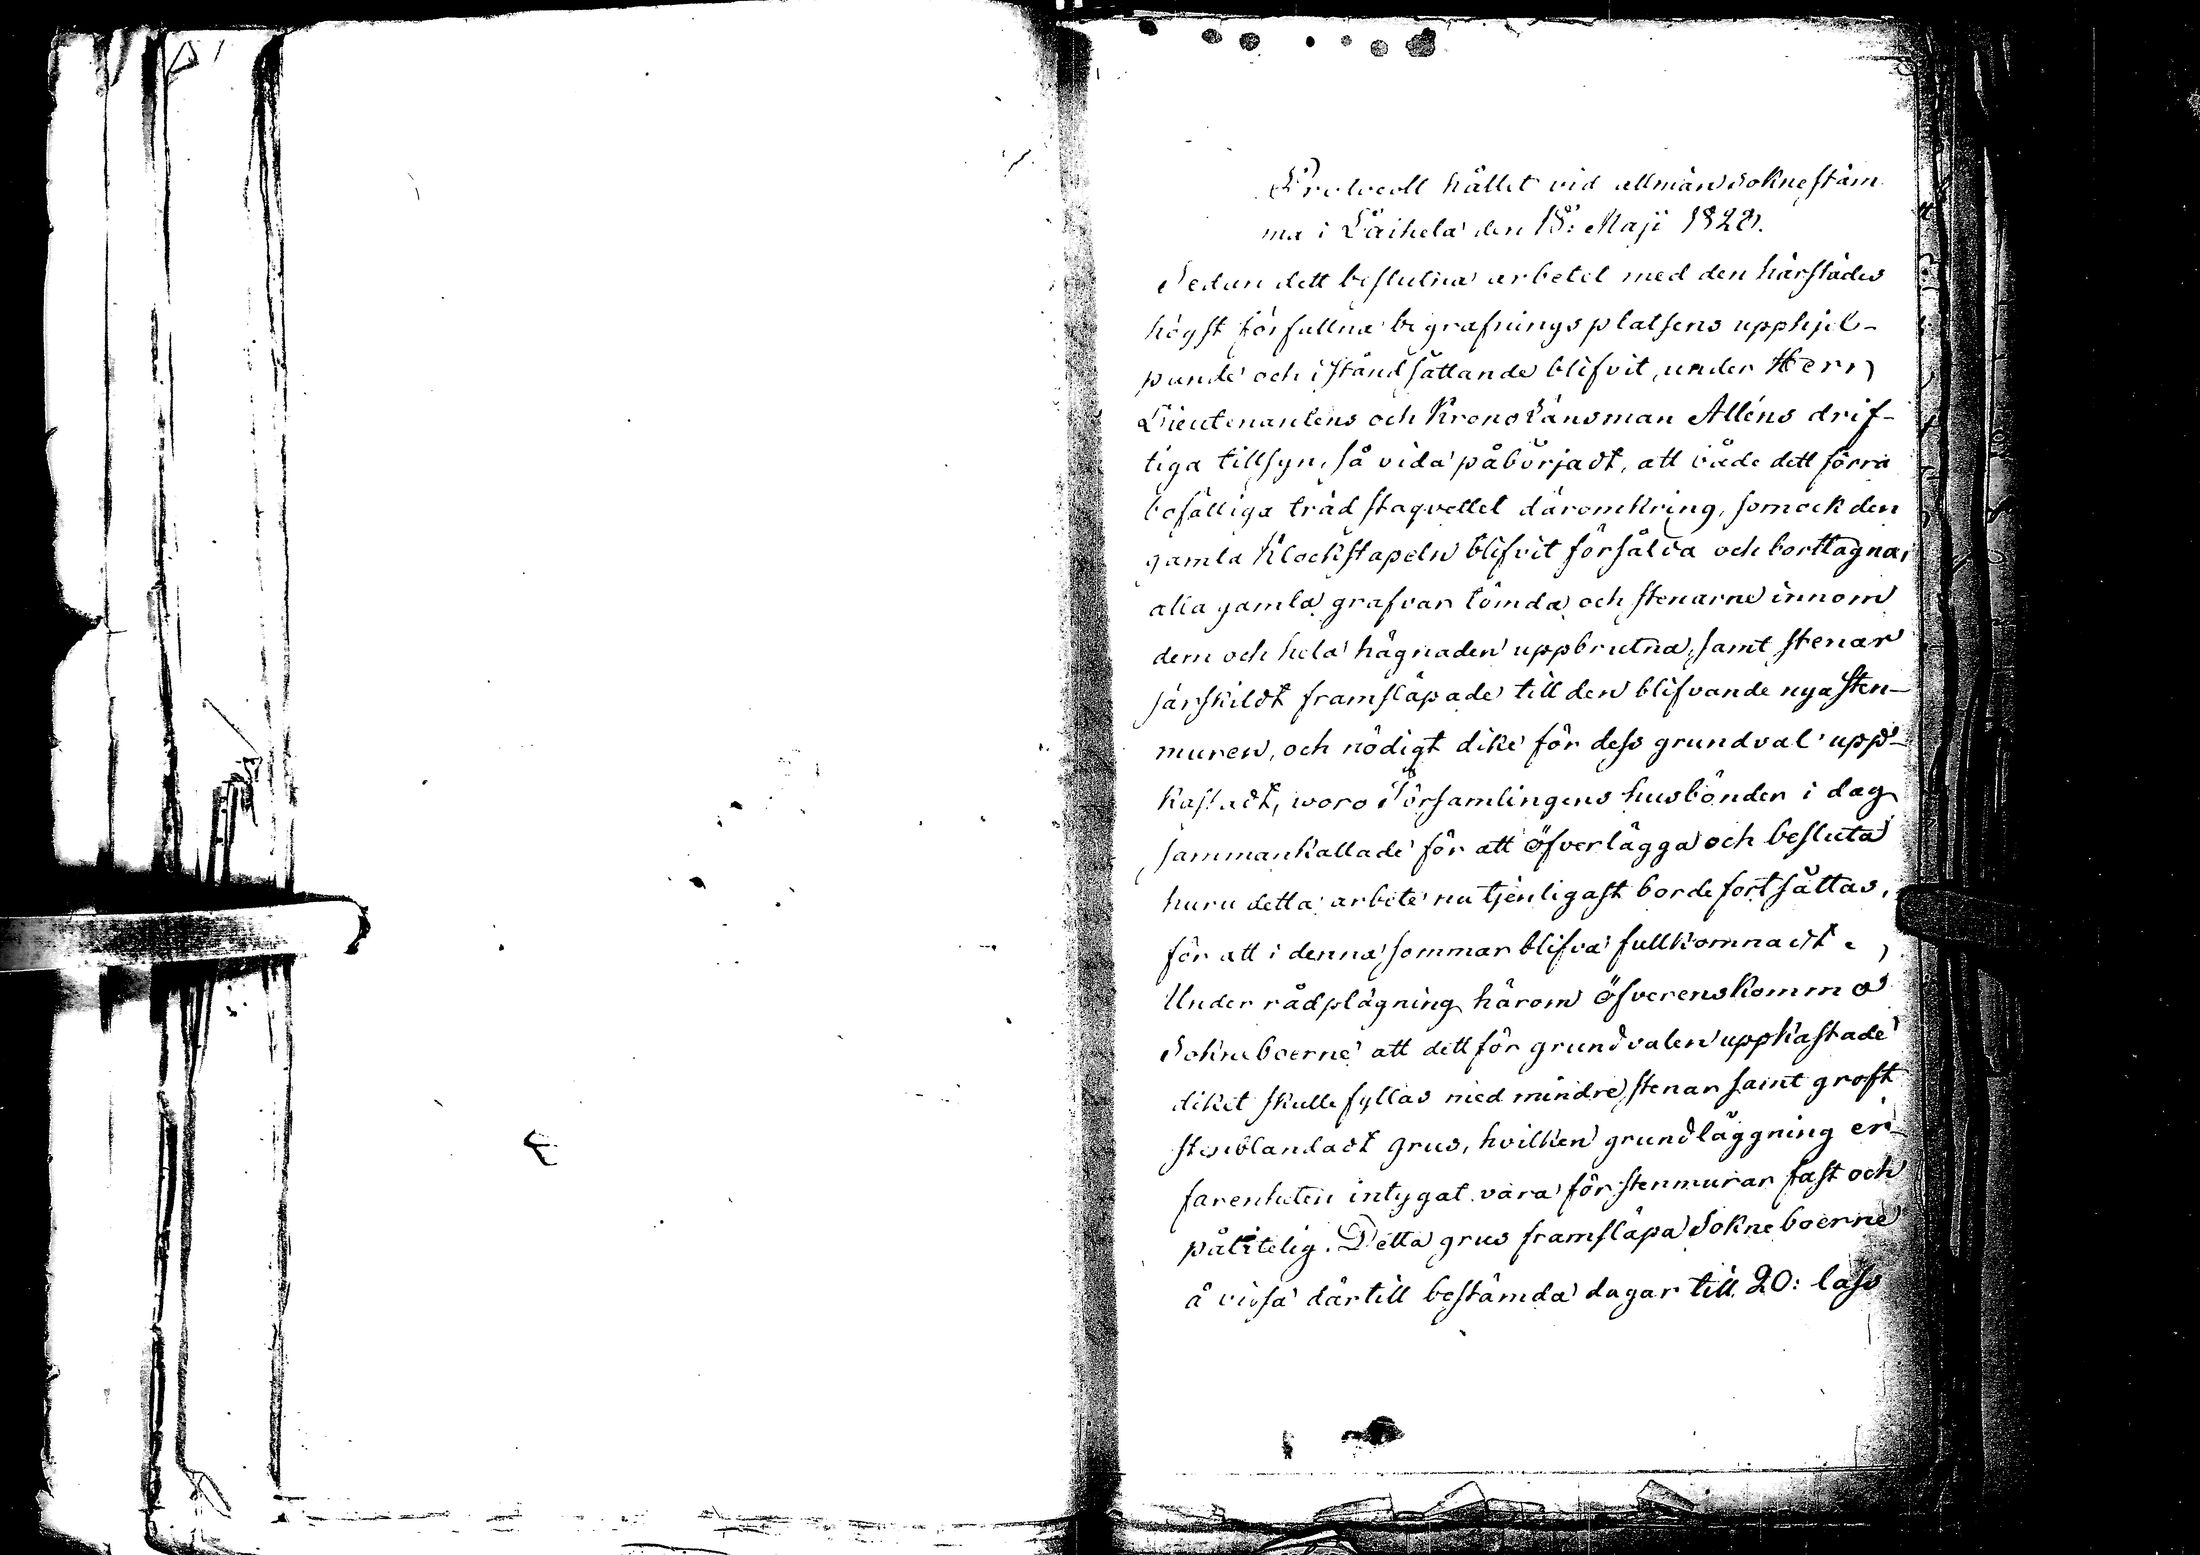 Protocoll hållet vid allmän Soknestäm
ma i Laihela den 18: Maji 1828.
Sedan dett beslutna arbetet med den härstädes
högst förfallna begrafningsplatsens upphjel-
pande och iståndsättande blifvit, under Herr
Lieutenantens och Krono Länsman Alléns drif-
tiga tillsyn, så vida påbörjadt, att både dett förra
bofälliga träd staqvettet däromkring, som ock den
gamla Klockstapeln blifvit försålda och borttagna,
alla gamla grafvar tömda och stenarne innom
dem och hela hägnaden uppbrutna, samt stenar
särskildt framsläpade till den blifvande nya sten-
muren, och nödigt dike för dess grundval upp-
kastadt, woro Församlingens husbönder i dag
sammankallade för att öfverlägga och besluta
huru detta arbete nu tjenligast borde fortsättas,
för att i denna sommar blifva fullkomnadt.
Under rådplägning härom öfverenskommo
Sokneboerne att dett för grundvalen uppkastade
diket skulle fyllas med mindre stenar samt groft
stenblandadt grus, hvilken grundläggning er-
farenheten intygat vara för stenmurar fast och
pålitelig. Detta grus framsläpa Sokneboerne
å vissa därtill bestämda dagar till 20: lass